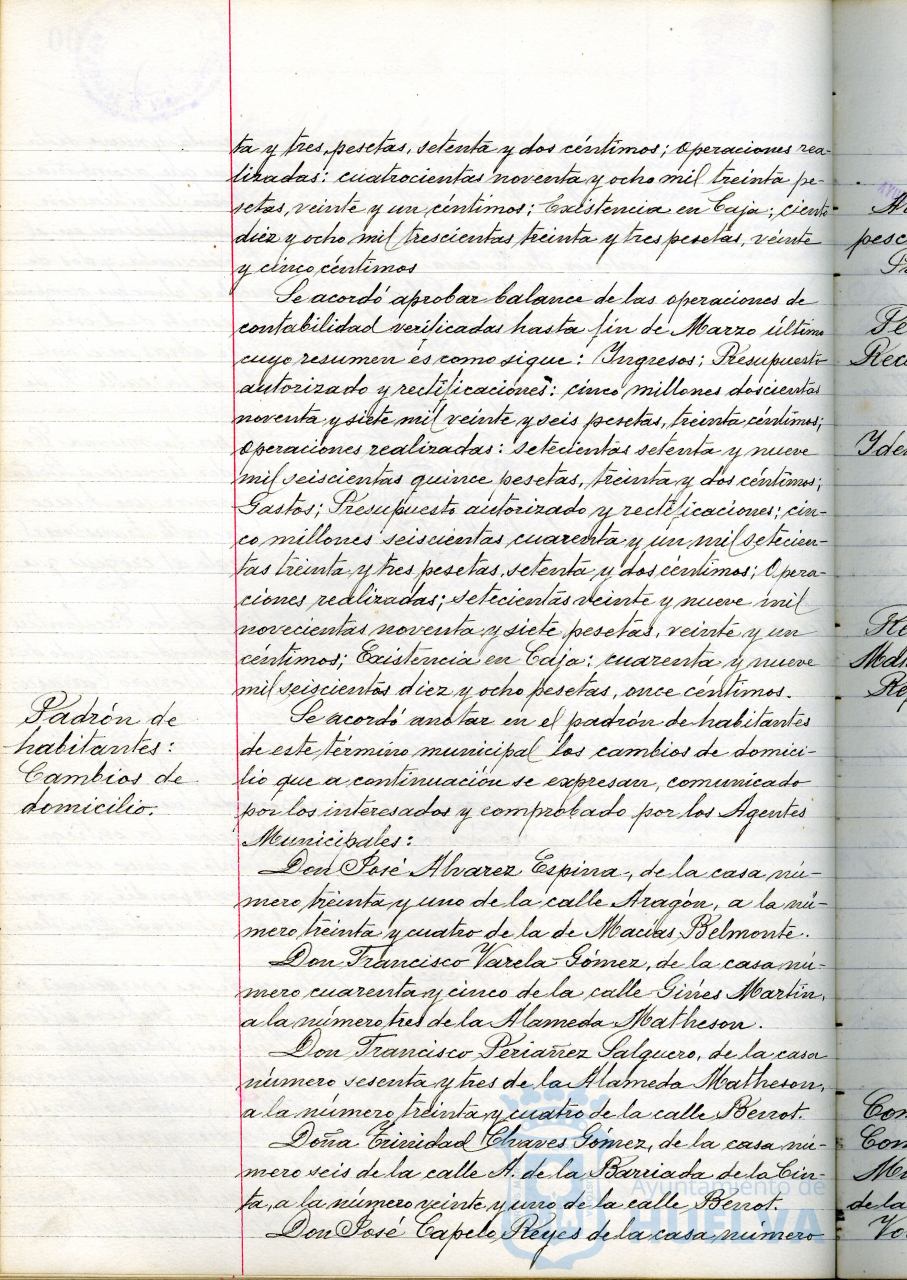 ta y tres, pesetas, setenta y dos céntimos; Operaciones rea-
lizadas: cuatrocientas noventa y ocho mil treinta pe-
setas, veinte y un céntimos; Existencia en Caja: ciento
diez y ocho mil trescientas treinta y tres pesetas, veinte
y cinco céntimos
Se acordó aprobar balance de las operaciones de
contabilidad verificadas hasta fin de Marzo último
cuyo resumen es como sigue: Ingresos; Presupuesto
autorizado y rectificaciones: cinco millones doscientas
noventa y siete mil veinte y seis pesetas, treinta céntimos;
Operaciones realizadas: setecientas setenta y nueve
mil seiscientas quince pesetas, treinta y dos céntimos;
Gastos; Presupuesto autorizado y rectificaciones; cin-
co millones seiscientas cuarenta y un mil setecien-
tas treinta y tres pesetas, setenta y dos céntimos; Opera-
ciones realizadas; setecientas veinte y nueve mil
novecientas noventa y siete pesetas, veinte y un
céntimos; Existencia en Caja: cuarenta y nueve
mil seiscientos diez y ocho pesetas, once céntimos.
Padrón de
habitantes:
Cambios de
domicilio.
Se acordó anotar en el padrón de habitantes
de este término municipal los cambios de domici-
lio que a continuación se expresan, comunicado
por los interesados y comprobado por los Agentes
Municipales:
Don José Alvarez Espina, de la casa nú-
mero treinta y uno de la calle Aragón, a la nú-
mero treinta y cuatro de la de Macías Belmonte.
Don Francisco Varela Gómez, de la casa nú-
mero cuarenta y cinco de la calle Ginés Martín,
a la número tres de la Alameda Matheson.
Don Francisco Periañez Salguero, de la casa
número sesenta y tres de la Alameda Matheson,
a la número treinta y cuatro de la calle Berrot.
Doña Trinidad Chaves Gómez, de la casa nú-
mero seis de la calle A. de la Barriada de la Cin-
ta, a la número veinte y uno de la calle Berrot.
Don José Capelo Reyes de la casa número
Ayuntamiento de
HUELVA